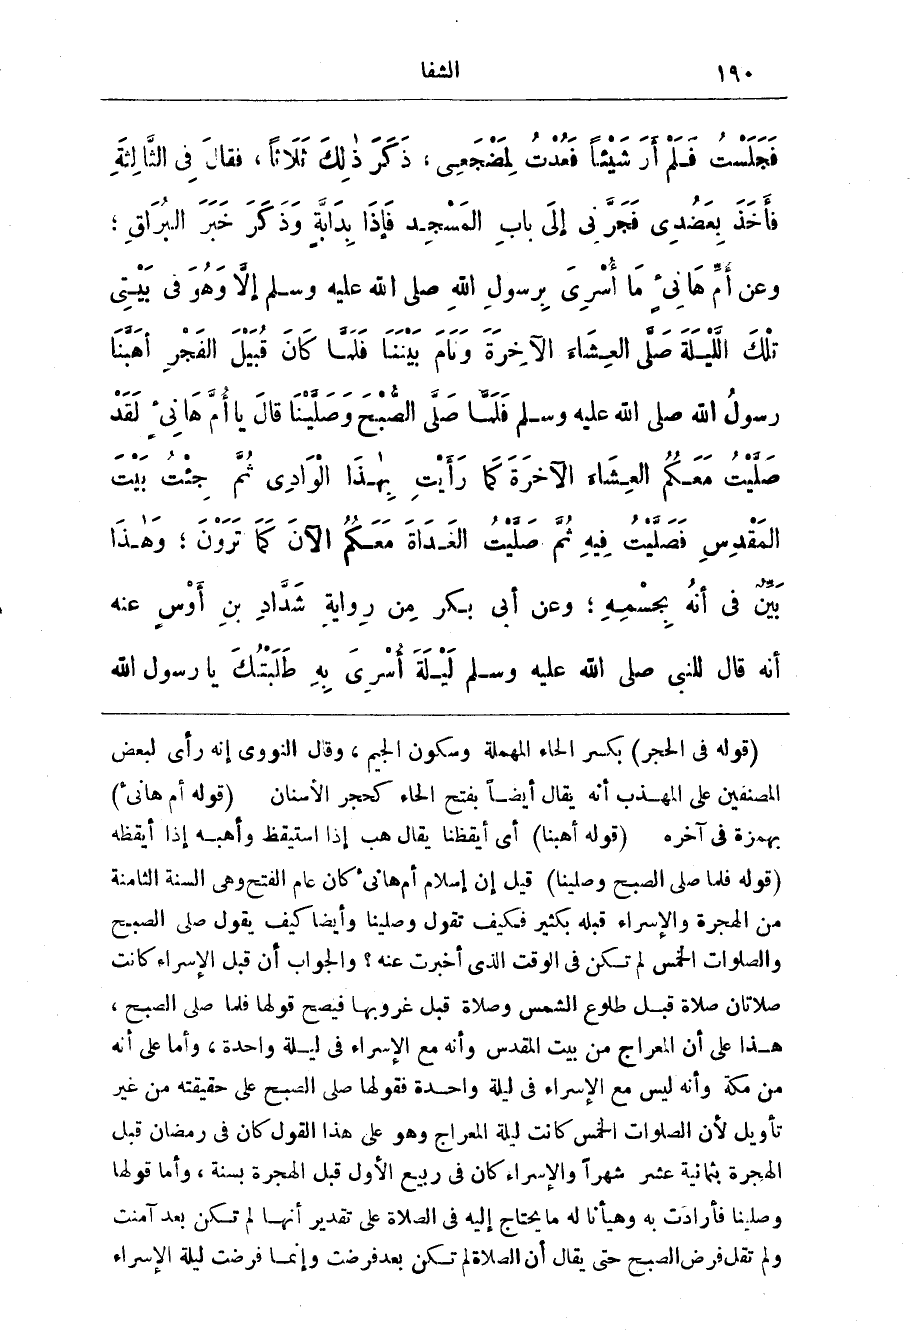 ١٩٠ الشفا
فَجَلَسْتُ فَلَمْ أَرَ شَيْئاً فَعُدْتُ لِمَضْجَعِى ، ذَكَرَ ذٰلِكَ ثَلَاثاً ، فقالَ فِى الثَّالِثَةِ
فَأَخَذَ بِعَضُدِى فَجَرَّنِى إلَى بابِ المَسْجِدِ فَإِذَا بِدَابَّةٍ وَذَكَرَ خَبَرَ البُرَاقِ ؛
وعن أُمِّ هَانِىءٍ مَا أُسْرِىَ بِرسولِ اللهِ صلى الله عليه وسلم إلَّا وَهُوَ فى بَيْتِى
تِلْكَ اللَّيْلَةَ صَلَّى العِشَاءَ الآخِرَةَ وَنَامَ بَيْنَنَا فَلَمَّا كَانَ قُبَيْلَ الفَجْرِ أَهَبَّنَا
رسولُ الله صلى الله عليه وسلم فَلَمَّا صَلَّى الصُّبْحَ وَصَلَّيْنَا قالَ يا أُمَّ هَانِىءٍ لَقَدْ
صَلَّيْتُ مَعَكُمُ العِشَاءَ الآخِرَةَ كَمَا رَأَيْتِ بِهٰذَا الْوَادِى ثُمَّ جِئْتُ بَيْتَ
المَقْدِسِ فَصَلَّيْتُ فِيهِ ثُمَّ صَلَّيْتُ الغَدَاةَ مَعَكُمُ الآنَ كَمَا تَرَوْنَ ؛ وَهٰذَا
بَيِّنٌ فى أَنَّهُ بِجِسْمِهِ ؛ وعن أبى بكر مِن رِوايةِ شَدَّادِ بنِ أَوْسٍ عنه
أنه قال للنبى صلى الله عليه وسلم لَيْلَةَ أُسْرِىَ بِهِ طَلَبْتُكَ يا رسول الله
(قوله فى الحجر) بكسر الحاء المهملة وسكون الجيم ، وقال النووى إنه رأى لبعض
المصنفين على المهذب أنه يقال أيضاً بفتح الحاء كحجر الأسنان (قوله أم هانىء)
بهمزة فى آخره (قوله أهبنا) أى أيقظنا يقال هب إذا استيقظ وأهبه إذا أيقظه
(قوله فلما صلى الصبح وصلينا) قيل إن إسلام أم هانىء كان عام الفتح وهى السنة الثامنة
من الهجرة والإسراء قبله بكثير فكيف تقول وصلينا وأيضا كيف يقول صلى الصبح
والصلوات الخمس لم تكن فى الوقت الذى أخبرت عنه ؟ والجواب أن قبل الإسراء كانت
صلاتان صلاة قبل طلوع الشمس وصلاة قبل غروبها فيصح قولها فلما صلى الصبح ،
هذا على أن المعراج من بيت المقدس وأنه مع الإسراء فى ليلة واحدة ، وأما على أنه
من مكة وأنه ليس مع الإسراء فى ليلة واحدة فقولها صلى الصبح على حقيقته من غير
تأويل لأن الصلوات الخمس كانت ليلة المعراج وهو على هذا القول كان فى رمضان قبل
الهجرة بثمانية عشر شهراً والإسراء كان فى ربيع الأول قبل الهجرة بسنة ، وأما قولها
وصلينا فأرادت به وهيأنا له ما يحتاج إليه فى الصلاة على تقدير أنها لم تكن بعد آمنت
ولم تقل فرض الصبح حتى يقال أن الصلاة لم تكن بعد فرضت وإنما فرضت ليلة الإسراء